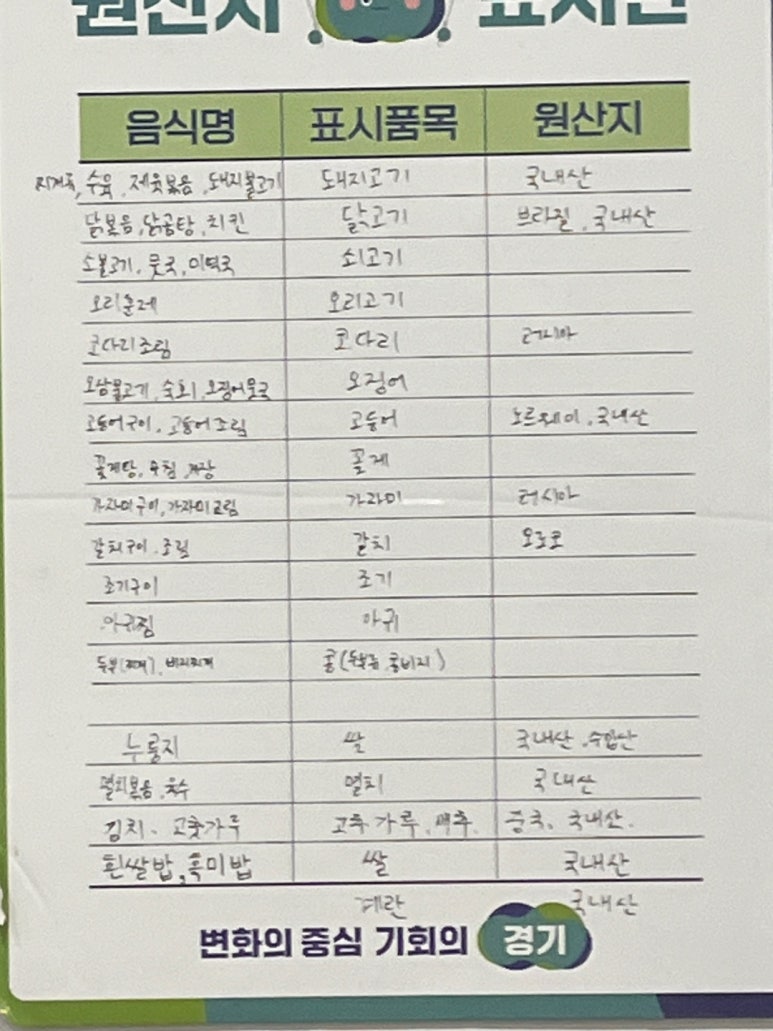 원산지 표시판
음식명 표시품목 원산지
찌개류, 수육, 제육볶음, 돼지불고기 돼지고기 국내산
닭볶음, 닭곰탕, 치킨 닭고기 브라질, 국내산
소불고기, 뭇국, 미역국 쇠고기
오리훈제 오리고기
코다리조림 코다리 러시아
오삼불고기, 숙회, 오징어뭇국 오징어
고등어구이, 고등어조림 고등어 노르웨이, 국내산
꽃게탕, 무침, 게장 꽃게
가자미구이, 가자미조림 가자미 러시아
갈치구이, 조림 갈치
조기구이 조기
아귀찜 아귀
두부(찌개), 비지찌개 콩(두부류, 콩비지)
누룽지 쌀 국내산, 수입산
멸치볶음, 육수 멸치 국내산
김치, 고춧가루 고추가루, 배추, 중국, 국내산.
흰쌀밥, 흑미밥 쌀 국내산
계란 국내산
변화의 중심 기회의 경기